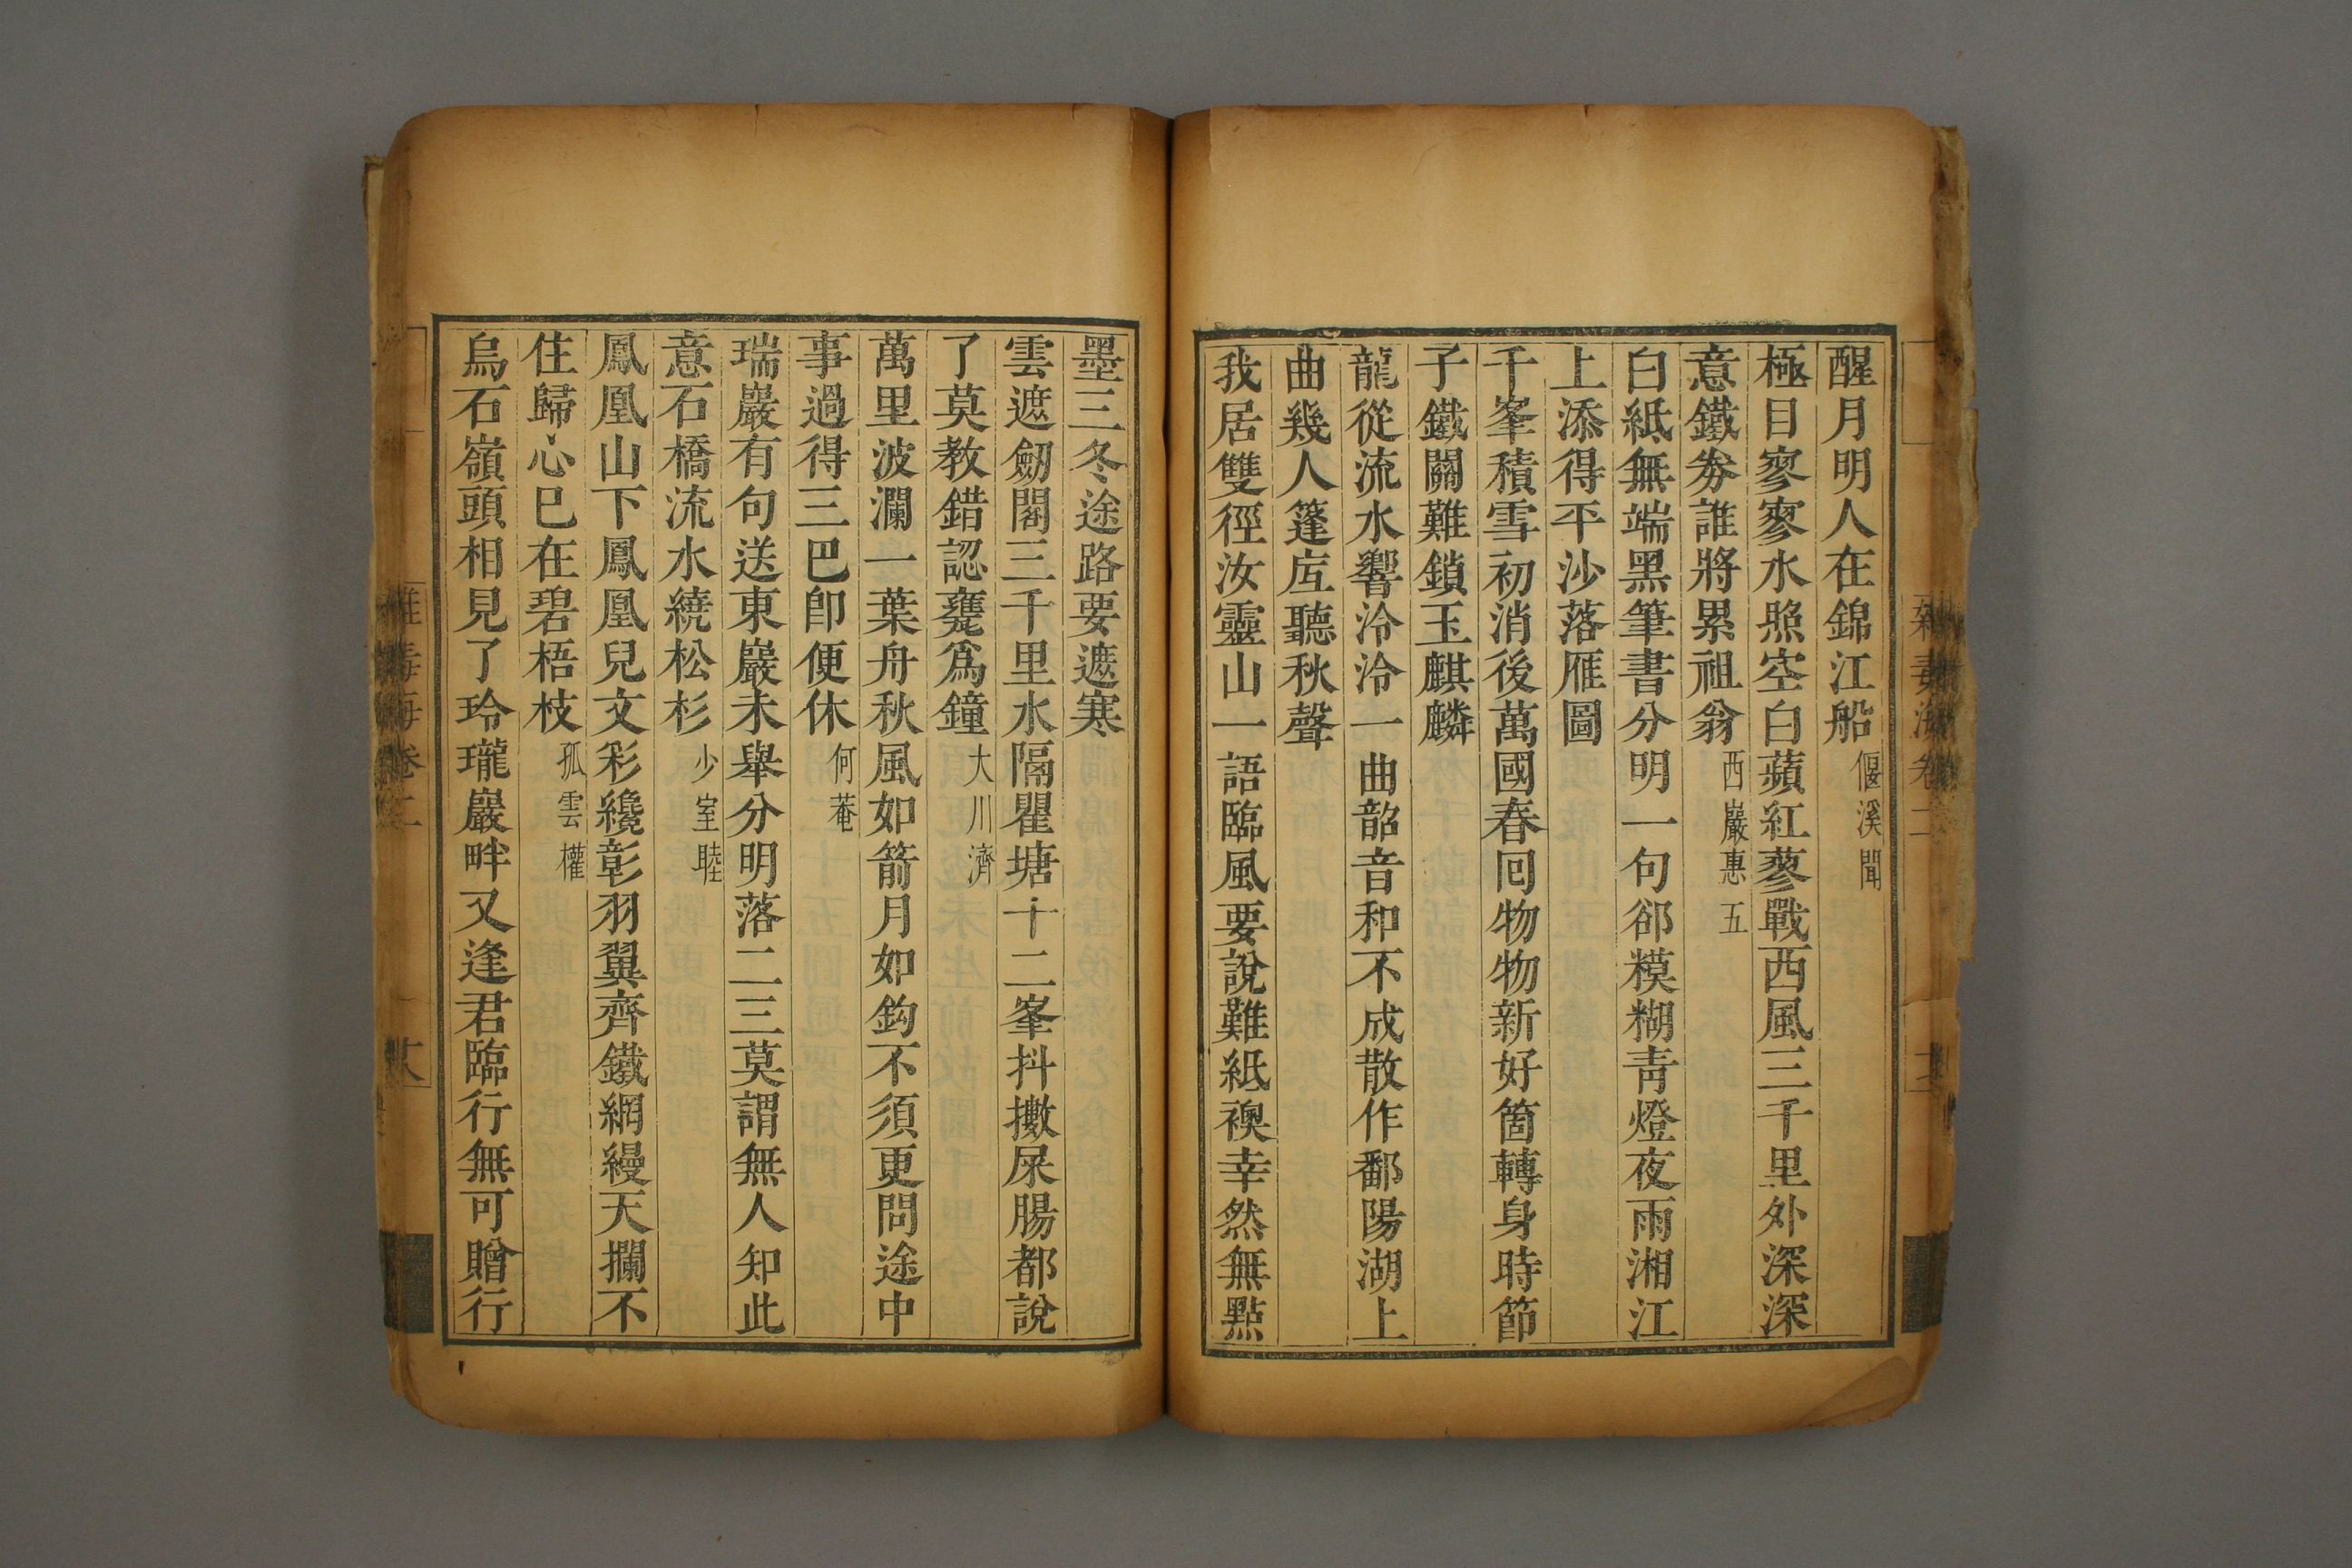 醒月明人在錦江船偃溪聞
極目寥寥水照空白蘋紅蓼戰西風三千里外深深
意鐵劵誰將累祖翁西巖惠五
白紙無端黑筆書分明一句郤模糊靑燈夜雨湘江
上添得平沙落雁圖
千峯積雪初消後萬國春囘物物新好箇轉身時節
子鐵關難鎖玉麒麟
龍從流水響泠泠一曲韶音和不成散作鄱陽湖上
曲幾人篷㡳聽秋聲
我居雙徑汝靈山一語臨風要說難紙襖幸然無點
墨三冬途路要遮寒
雲遮劒閣三千里水隔瞿塘十二峯抖擻屎腸都說
了莫教錯認甕爲鐘大川濟
萬里波瀾一葉舟秋風如箭月如鈎不須更問途中
事過得三巴卽便休何菴
瑞巖有句送東巖未舉分明落二三莫謂無人知此
意石橋流水繞松杉少室睦
鳳凰山下鳳凰兒文彩纔彰羽翼齊鐵網縵天攔不
住歸心巳在碧梧枝孤雲權
烏石嶺頭相見了玲瓏巖畔又逢君臨行無可贈行